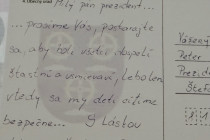 Milý pán prezident...
... prosíme Vás, postarajte
sa, aby boli všetci dospelí
šťastní a usmievaví, lebo len
vtedy sa my deti cítime
bezpečne...
S láskou
Peter
Prezid
Štef